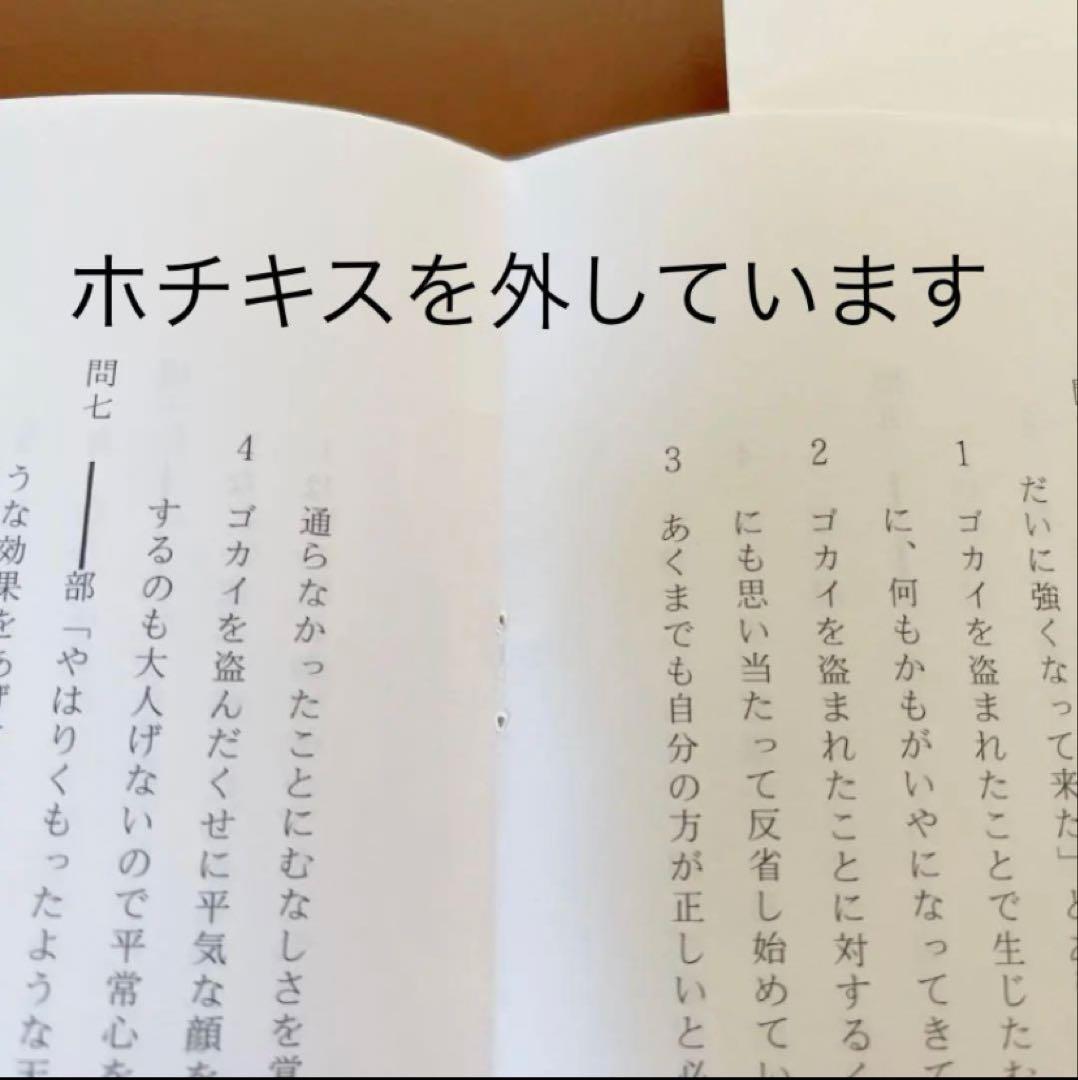 ホチキスを外しています
だいに強くなって来た」と
1 ゴカイを盗まれたことで生じたむ
に、何もかもがいやになってきて
2 ゴカイを盗まれたことに対するく
にも思い当たって反省し始めてい
3 あくまでも自分の方が正しいと必
通らなかったことにむなしさを覚
4 ゴカイを盗んだくせに平気な顔を
するのも大人げないので平常心を
問七 ――部「やはりくもったような天
うな効果をあげ